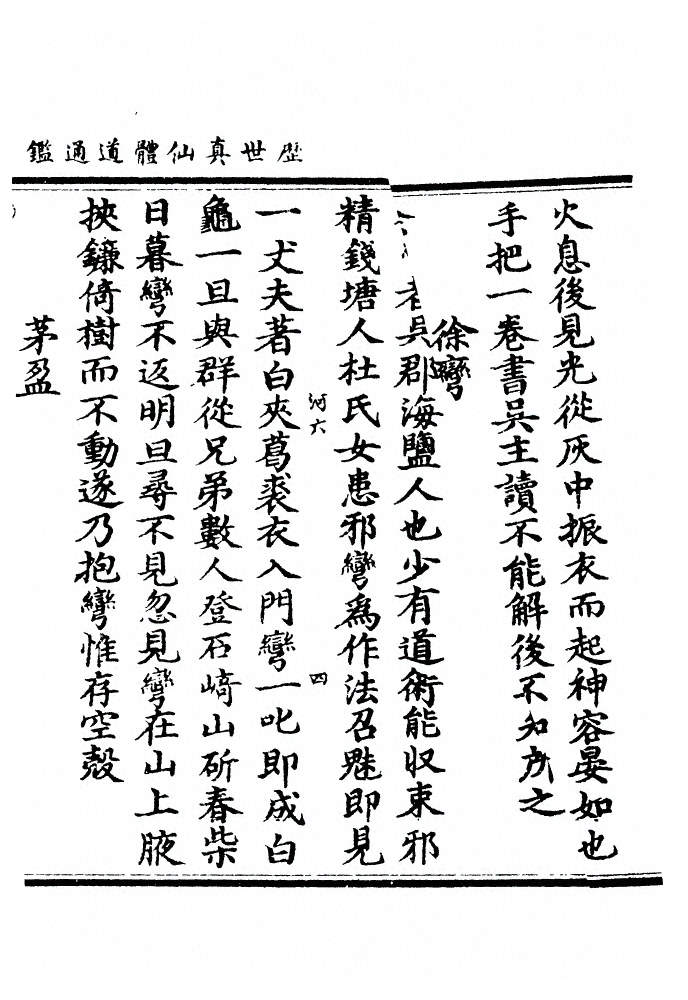 歷世真仙體道通鑑
火息後見光從灰中振衣而起神容晏如也
手把一卷書吳主讀不能解後不知所之
徐彎
吳郡海鹽人也少有道術能収束邪
精錢塘人杜氏女患邪彎爲作法召魅即見
河六
四
一丈夫著白夾葛裘衣入門彎一叱即成白
龜一旦與群從兄弟數人登石崎山斫春柴
日暮彎不返明旦尋不見忽見彎在山上腋
挾鐮倚樹而不動遂乃抱彎惟存空殼
茅盈